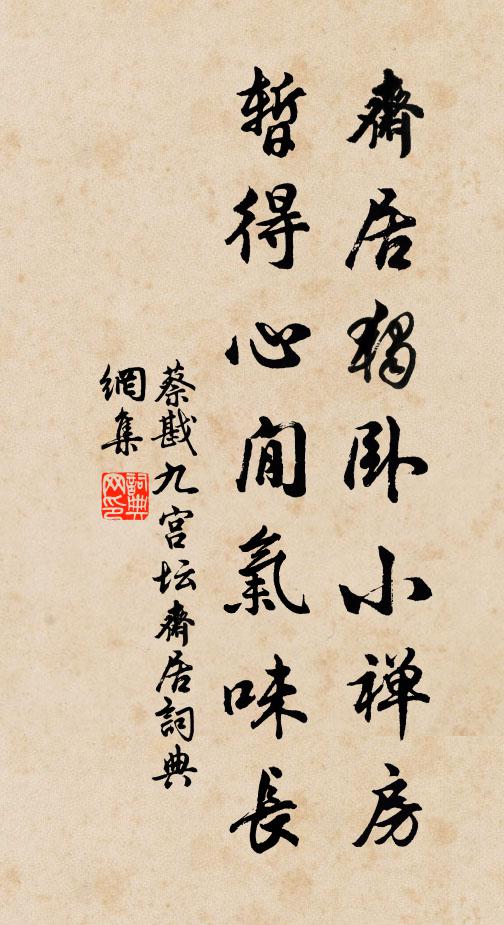 齋居獨卧小禅房
暫得心閒氣味長
蔡戡九宫坛齋居詞典
網集
詞典网印